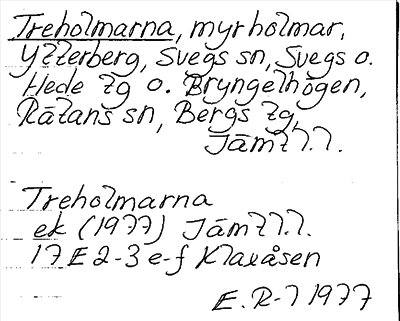 Treholmarna, myrholmar,
Ytterberg, Svegs sn, Svegs o.
Hede tg o. Bryngelhögen,
Rätans sn, Bergs tg,
Jämtl.l.
Treholmarna
ek (1977) Jämtl.l.
17 E 2-3 e-f Klaxåsen
E.R-l 1977